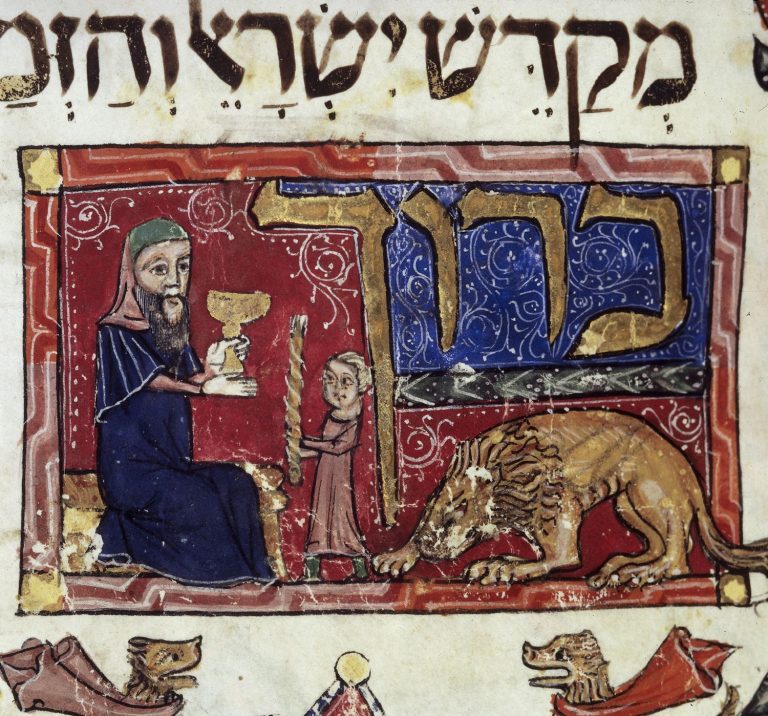 מְקַדֵּשׁ יִשְׂרָאֵל וְהַזְּמַ
ברוך